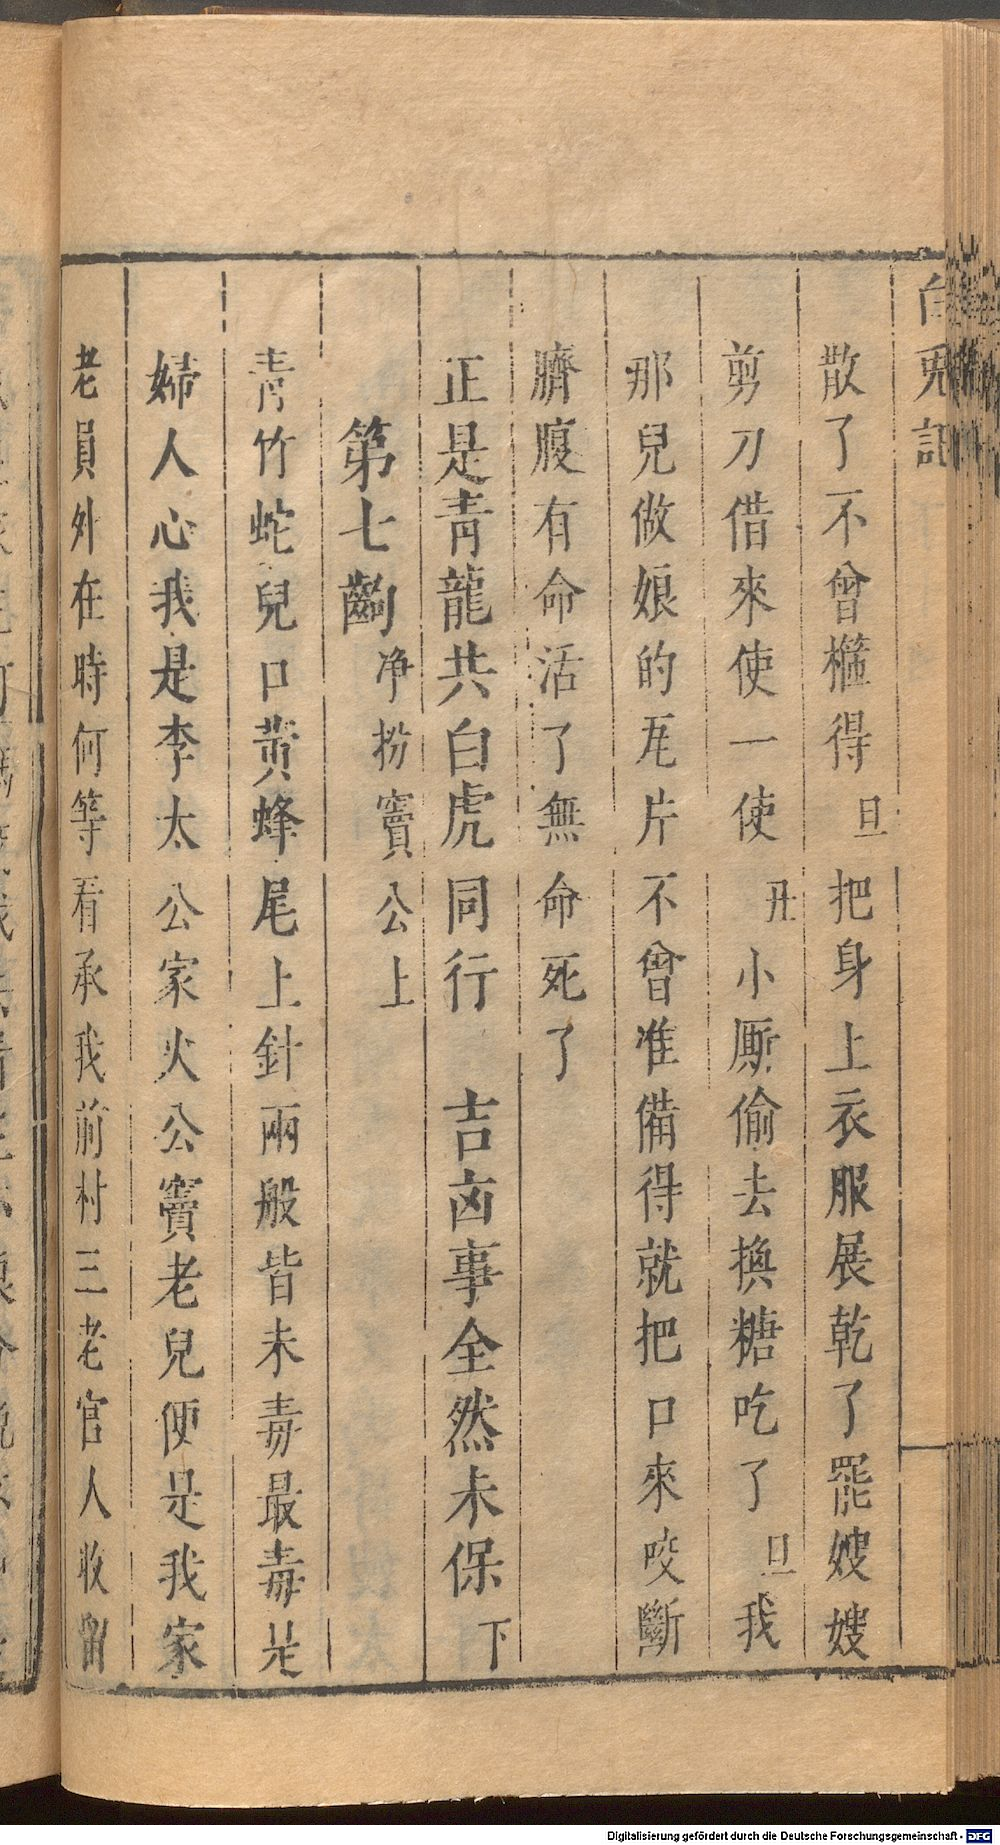 白兎記
散了不曾櫤得 旦 把身上衣服展乾了罷嫂嫂
剪刀借來使一使 丑 小厮偷去換糖吃了 旦 我
那兒做娘的瓦片不曾准備得就把口來咬斷
臍腹有命活了無命死了
正是青龍共白虎同行 吉凶事全然未保 下
第七齣 净扮竇公上
青竹蛇兒口黄蜂尾上針兩般皆未毒最毒是
婦人心我是李太公家火公竇老兒便是我家
老員外在時何等看承我前村三老官人收留
Digitalisierung gefördert durch die Deutsche Forschungsgemeinschaft - DFG